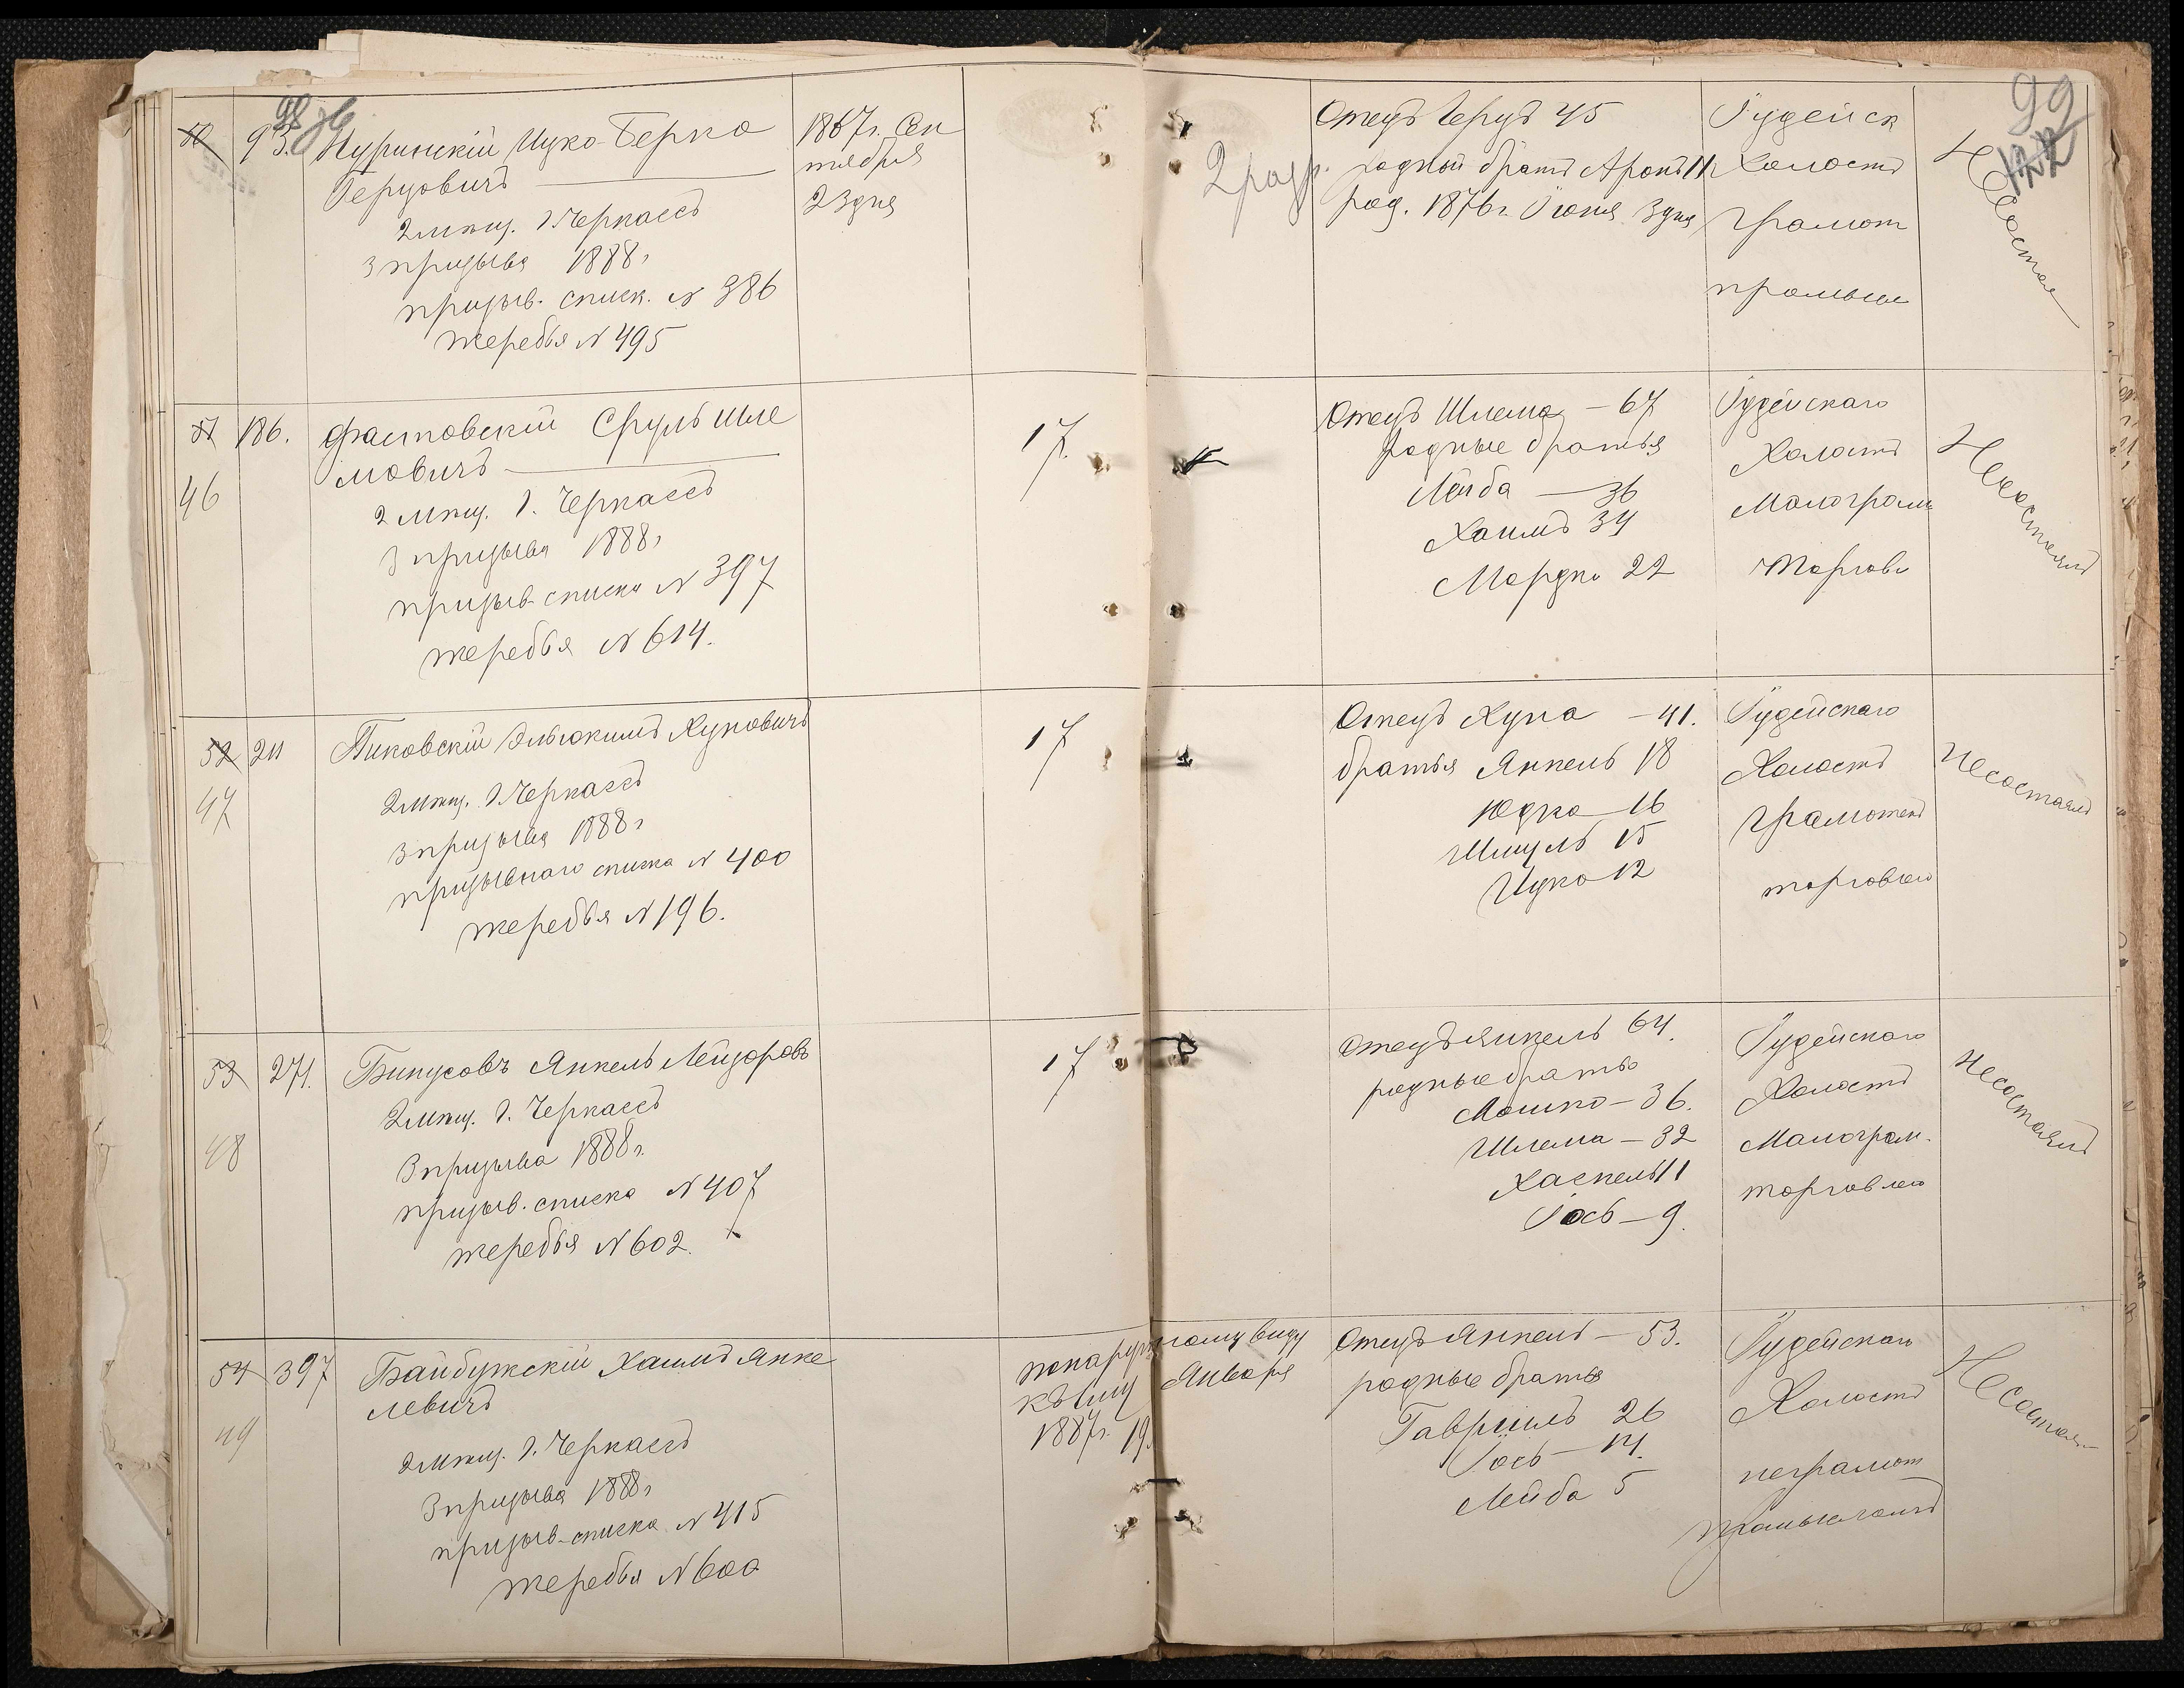 98
99
122
50
93.
Нуринскій Ицко-Берко
Герцовичъ
2 мпщ. г. Черкассъ
3 призыва 1888 г
призыв. списк. № 386
жеребья № 495
1867 г. Сен
тября
23 дня
2 разр.
Отецъ Герцъ 45
родной братъ Аронъ 11
род. 1876 г. Іюня 3 дня
Іудейск
Холостъ
Грамот
промысл
Несостоял
51
46
186.
Фастовскій Сруль Шле
мовичъ
2 мпщ. г. Черкассъ
3 призыва 1888 г
призыв. списка № 397
жеребья № 614.
17.
Отецъ Шлема – 67
родные братья
Лейба – 36
Хаимъ 34
Мордко 22
Іудейскаго
Холостъ
Малограм
Торгов
Несостоялъ
52
47
211
Пиковскій Эльюкимъ Хуновичъ
2 мпщ. г. Черкассъ
3 призыва 1888 г
призывнаго списка № 400
жеребья № 196.
17
Отецъ Хуна – 41.
братья Янкель 18
Юдка – 16
Шмуль 15
Ицко 12
Іудейскаго
Холостъ
Грамотенъ
торговлею
Несостоялъ
53
48
271.
Бинусовъ Янкель Лейзоровъ
2 мпщ. г. Черкассъ
3 призыва 1888 г.
призыв. списка № 407
жеребья № 602.
17
Отецъ Янкель 64.
родные братья
Мошко – 36.
Шлема – 32
Хаскель 11
Іось – 9.
Іудейскаго
Холостъ
Малограм.
торговлею
Несостоялъ
54
49
397
Байбужскій Хаимъ Янке
левичъ
2 мпщ. г. Черкассъ
3 призыва 1888 г
призыв. списка № 415
жеребья № 600
по наружному виду
къ Января
1887 г. 19.
Отецъ Янкель – 53.
родные братья
Гавріилъ 26
Іось – 14.
Лейба 5
Іудейскаго
Холостъ
неграмот
Промысломъ
Несостоял